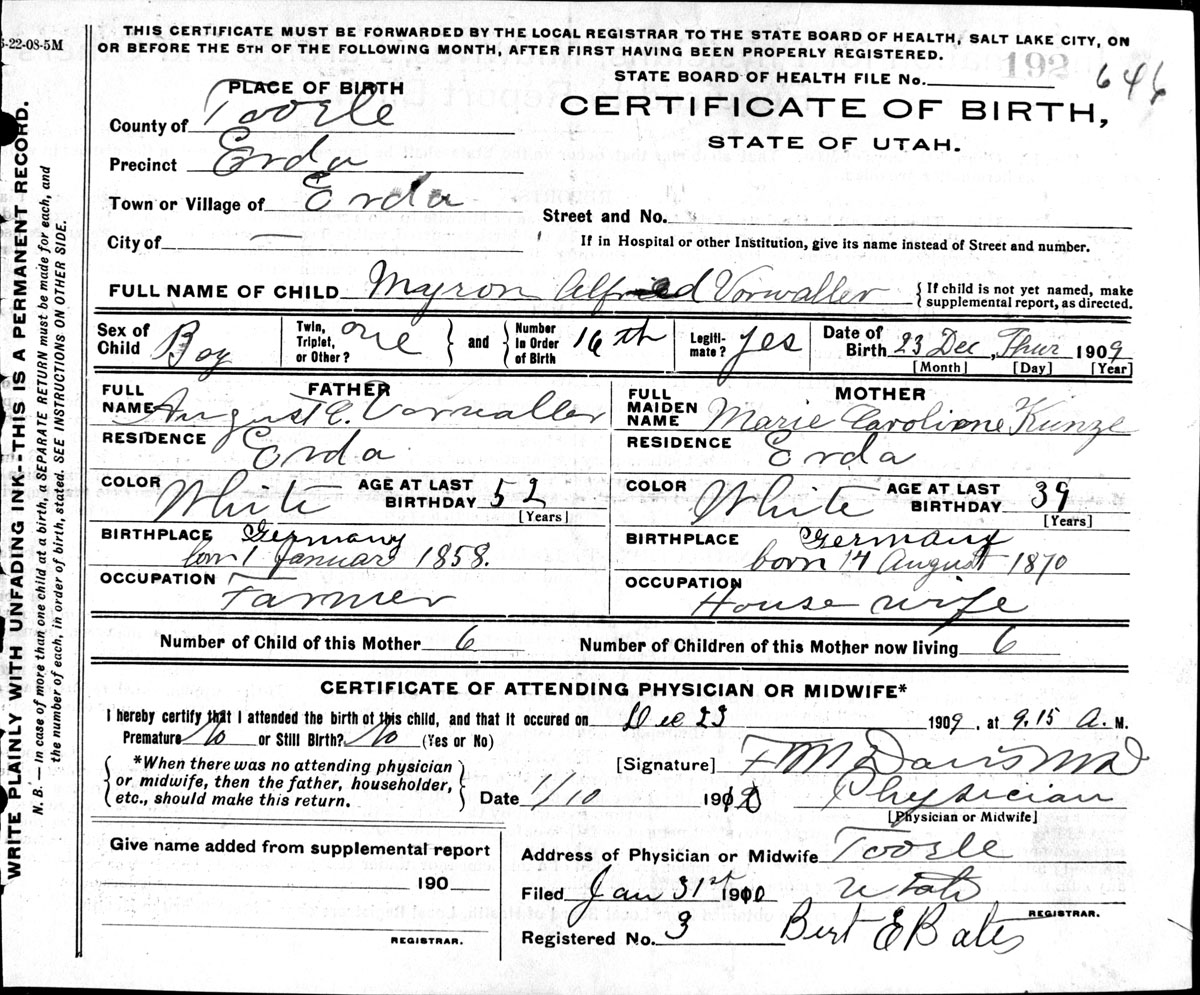 5-22-08-5M
THIS CERTIFICATE MUST BE FORWARDED BY THE LOCAL REGISTRAR TO THE STATE BOARD OF HEALTH, SALT LAKE CITY, ON
OR BEFORE THE 5TH OF THE FOLLOWING MONTH, AFTER FIRST HAVING BEEN PROPERLY REGISTERED.
192
STATE BOARD OF HEALTH FILE No. 646
PLACE OF BIRTH
CERTIFICATE OF BIRTH,
STATE OF UTAH.
County of Tooele
Precinct Erda
Town or Village of Erda
Street and No.
City of —
If in Hospital or other Institution, give its name instead of Street and number.
FULL NAME OF CHILD Myron Alfred Vorwaller { If child is not yet named, make
supplemental report, as directed.
Sex of Child Boy
Twin, Triplet, or Other? one } and { Number in Order of Birth 16th
Legiti-mate? yes
Date of Birth 23 Dec, Thur 1909
[Month] [Day] [Year]
FATHER
FULL NAME August E. Vorwaller
RESIDENCE Erda
COLOR White AGE AT LAST BIRTHDAY 52
[Years]
BIRTHPLACE Germany
born 1 Januar 1858.
OCCUPATION Farmer
MOTHER
FULL MAIDEN NAME Marie Caroline Kunze
RESIDENCE Erda
COLOR White AGE AT LAST BIRTHDAY 39
[Years]
BIRTHPLACE Germany
born 14 August 1870
OCCUPATION House wife
Number of Child of this Mother 6 Number of Children of this Mother now living 6
CERTIFICATE OF ATTENDING PHYSICIAN OR MIDWIFE*
I hereby certify that I attended the birth of this child, and that it occured on Dec 23 1909, at 9.15 A. M.
Premature No or Still Birth? No (Yes or No)
*When there was no attending physician
or midwife, then the father, householder,
etc., should make this return.
[Signature] F M Davis MD
Date 1/10 1910 Physician
[Physician or Midwife]
Give name added from supplemental report
190
REGISTRAR.
Address of Physician or Midwife Tooele
Utah
Filed Jan 31st 1910
REGISTRAR.
Registered No. 3 Bert E Bates
WRITE PLAINLY WITH UNFADING INK--THIS IS A PERMANENT RECORD.
N. B.—In case of more than one child at a birth, a SEPARATE RETURN must be made for each, and
the number of each, in order of birth, stated. SEE INSTRUCTIONS ON OTHER SIDE.